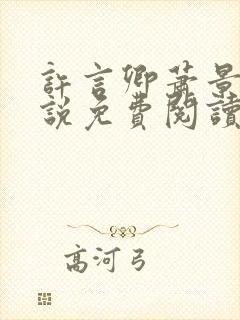 許言卿蕭景
說免費閱讀
高河弓